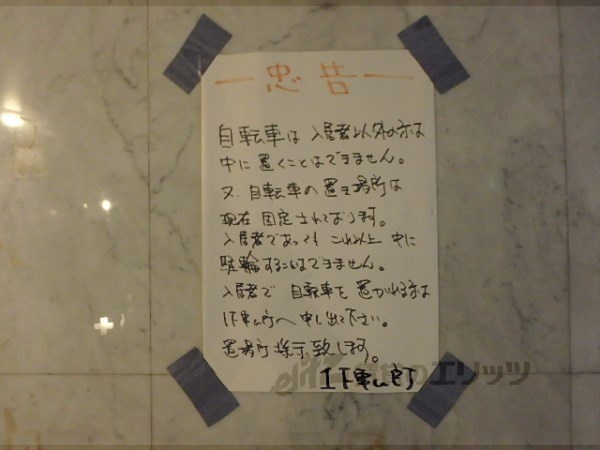 忠告
自転車は 入居者以外の方は
中に置くことはできません。
又、自転車の置き場所は
現在固定されております。
入居者であっても これ以上 中に
駐輪することはできません。
入居者で 自転車を置かれる方は
へ申し出て下さい。
置場所 指示致します。
エリッツ